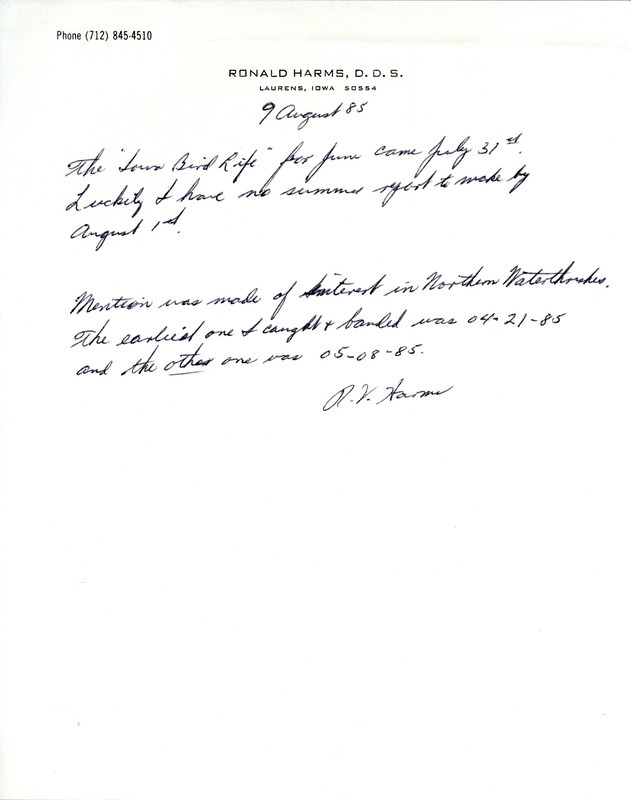 Phone (712) 845-4510
RONALD HARMS, D.D.S.
LAURENS, IOWA 50554
9 August 85
The "Iowa Bird Life" for June came July 31st.
Luckily I have no summer report to make by
August 1st.
Mention was made of interest in Northern Waterthrushes.
The earliest one I caught & banded was 04-21-85
and the other one was 05-08-85.
R.V. Harms